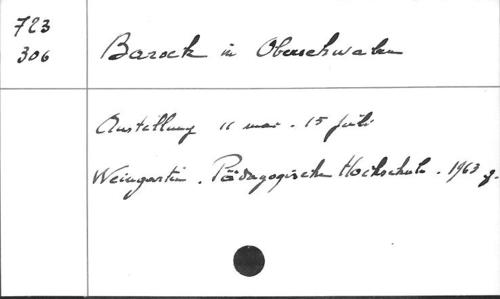 723
306
Barock in Oberschwaben
Austellung 11 mai - 15 juli
Weingarten. Pädagogische Hochschule. 1963 g.